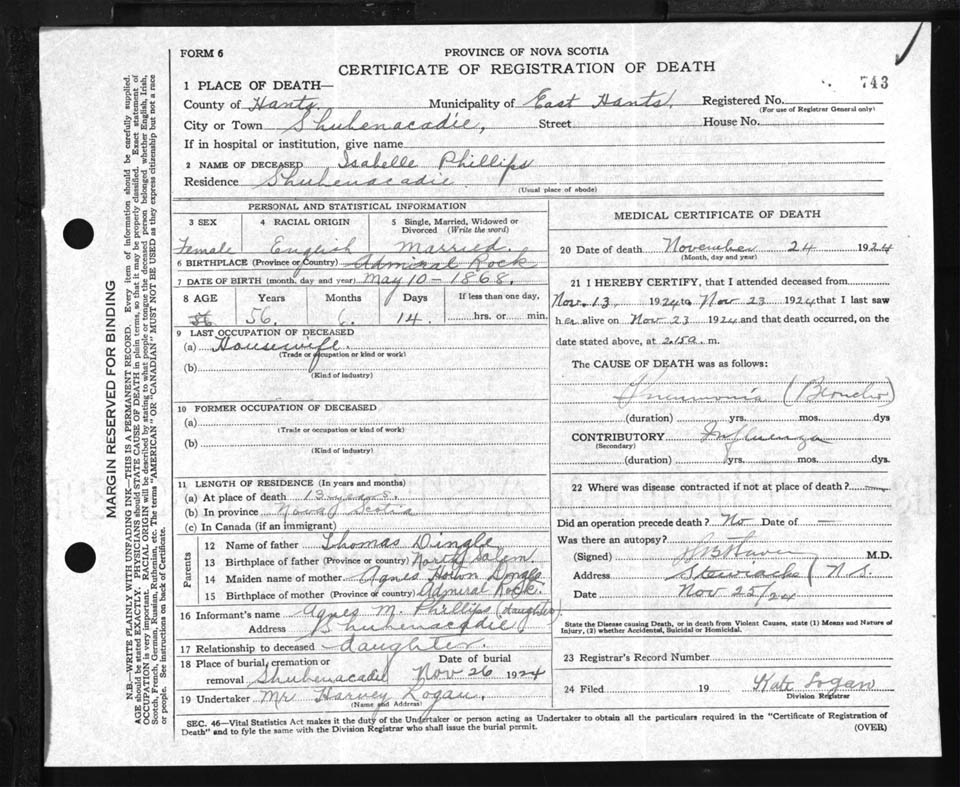 FORM 6
PROVINCE OF NOVA SCOTIA
CERTIFICATE OF REGISTRATION OF DEATH
743
1 PLACE OF DEATH—
County of Hants. Municipality of East Hants. Registered No.
(For use of Registrar General only)
City or Town Shubenacadie, Street House No.
If in hospital or institution, give name
2 NAME OF DECEASED Isabelle Phillips
Residence Shubenacadie
(Usual place of abode)
PERSONAL AND STATISTICAL INFORMATION
3 SEX 4 RACIAL ORIGIN 5 Single, Married, Widowed or Divorced (Write the word)
Female English Married.
6 BIRTHPLACE (Province or Country) Admiral Rock
7 DATE OF BIRTH (month, day and year) May 10 - 1868.
8 AGE Years Months Days If less than one day,
56 56. 6. 14. hrs. or min.
9 LAST OCCUPATION OF DECEASED
(a) Housewife
(Trade or occupation or kind or work)
(b)
(Kind of industry)
10 FORMER OCCUPATION OF DECEASED
(a)
(Trade or occupation or kind of work)
(b)
(Kind of industry)
11 LENGTH OF RESIDENCE (In years and months)
(a) At place of death 13 years.
(b) In province Nova Scotia
(c) In Canada (if an immigrant)
Parents
12 Name of father Thomas Dingle
13 Birthplace of father (Province or country) North Salem.
14 Maiden name of mother Agnes Dingle
15 Birthplace of mother (Province or country) Admiral Rock.
16 Informant's name Agnes M. Phillips (daughter)
Address Shubenacadie
17 Relationship to deceased daughter.
18 Place of burial, cremation or Date of burial
removal Shubenacadie Nov 26 1924
19 Undertaker Mr Harvey Logan.
(Name and Address)
MEDICAL CERTIFICATE OF DEATH
20 Date of death November 24 1924
(Month, day and year)
21 I HEREBY CERTIFY, that I attended deceased from
Nov. 13 1924 to Nov 23 1924 that I last saw
her alive on Nov 23 1924 and that death occurred, on the
date stated above, at 2.15 a. m.
The CAUSE OF DEATH was as follows:
Pneumonia (Broncho)
(duration) yrs. mos. dys
CONTRIBUTORY Influenza
(Secondary)
(duration) yrs. mos. dys.
22 Where was disease contracted if not at place of death?
Did an operation precede death? No Date of —
Was there an autopsy?
(Signed) M.D.
Address Stewiacke N.S.
Date Nov 25/24
State the Disease causing Death, or in death from Violent Causes, state (1) Means and Nature of
Injury, (2) whether Accidental, Suicidal or Homicidal.
23 Registrar's Record Number
24 Filed 19 Kate Logan
Division Registrar
SEC. 46—Vital Statistics Act makes it the duty of the Undertaker or person acting as Undertaker to obtain all the particulars required in the "Certificate of Registration of
Death" and to fyle the same with the Division Registrar who shall issue the burial permit. (OVER)
MARGIN RESERVED FOR BINDING
N.B.—WRITE PLAINLY WITH UNFADING INK—THIS IS A PERMANENT RECORD. Every item of information should be carefully supplied.
AGE should be stated EXACTLY. PHYSICIANS should STATE CAUSE OF DEATH in plain terms, so that it may be properly classified. Exact statement of
OCCUPATION is very important. RACIAL ORIGIN will be described by stating to what people or tongue the deceased person belonged whether English, Irish,
Scotch, French, German, Russian, Ruthenian, etc. The terms "AMERICAN" OR "CANADIAN" MUST NOT BE USED as they express citizenship but not a race
or people. See instructions on back of Certificate.